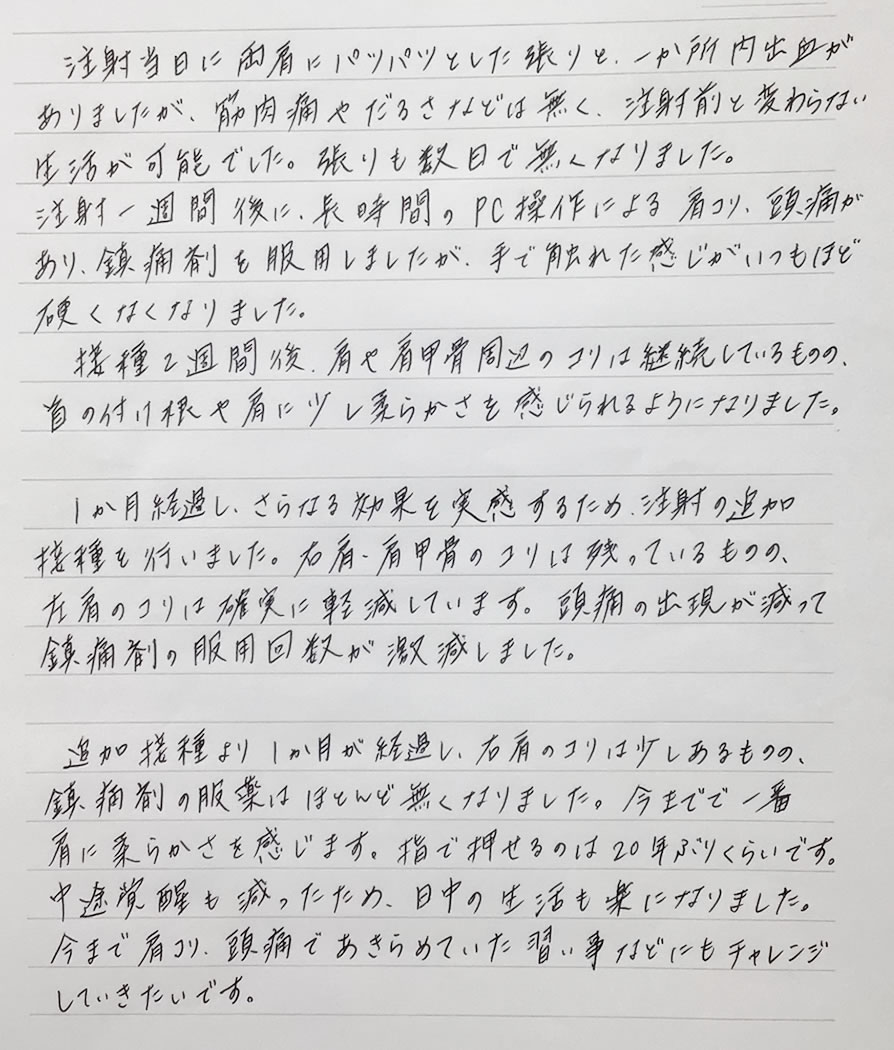 注射当日に両肩にパツパツとした張りと、一か所内出血が
ありましたが、筋肉痛やだるさなどは無く、注射前と変わらない
生活が可能でした。張りも数日で無くなりました。
注射一週間後に、長時間のPC操作による肩コリ、頭痛が
あり、鎮痛剤を服用しましたが、手で触れた感じがいつもほど
硬くなくなりました。
接種2週間後、肩や肩甲骨周辺のコリは継続しているものの、
首の付け根や肩に少し柔らかさを感じられるようになりました。
1か月経過し、さらなる効果を実感するため、注射の追加
接種を行いました。右肩・肩甲骨のコリは残っているものの、
左肩のコリは確実に軽減しています。頭痛の出現が減って
鎮痛剤の服用回数が激減しました。
追加接種より1か月が経過し、右肩のコリは少しあるものの、
鎮痛剤の服薬はほとんど無くなりました。今までで一番
肩に柔らかさを感じます。指で押せるのは20年ぶりくらいです。
中途覚醒も減ったため、日中の生活も楽になりました。
今まで肩コリ、頭痛であきらめていた習い事などにもチャレンジ
していきたいです。